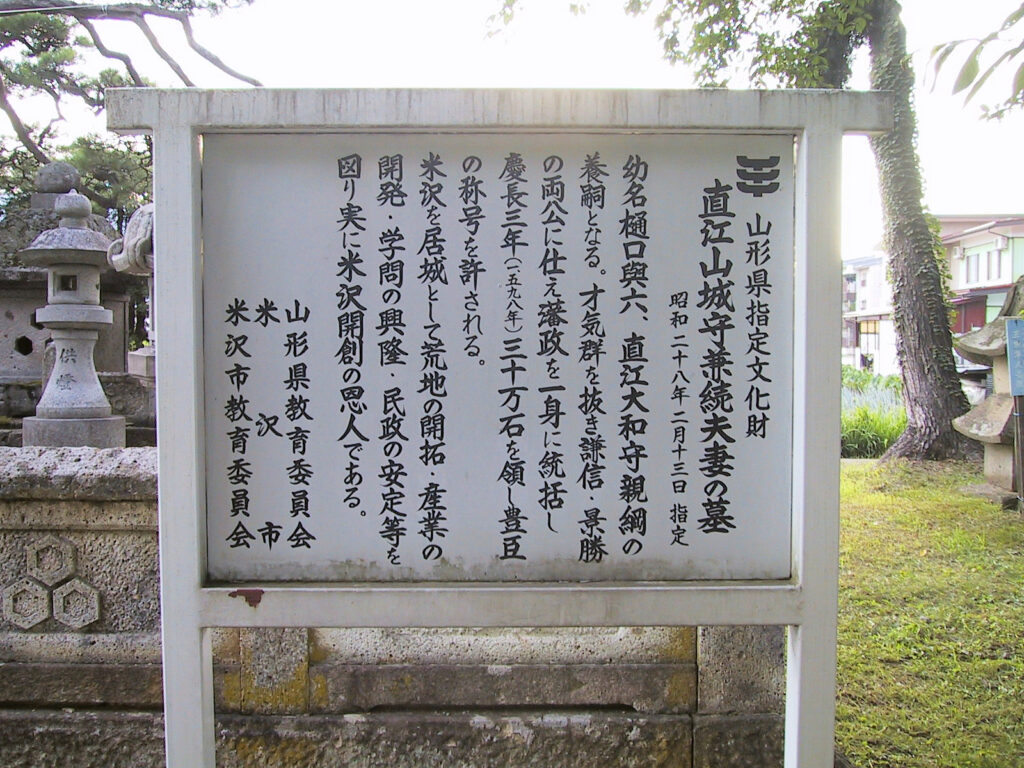 山形県指定文化財
直江山城守兼続夫妻の墓
昭和二十八年二月十三日 指定
幼名樋口與六、直江大和守親綱の
養嗣となる。才気群を抜き謙信・景勝
の両公に仕え藩政を一身に統括し
慶長三年(一五九八年)三十万石を領し豊臣
の称号を許される。
米沢を居城として荒地の開拓・産業の
開発・学問の興隆・民政の安定等を
図り実に米沢開創の恩人である。
山形県教育委員会
米沢市
米沢市教育委員会